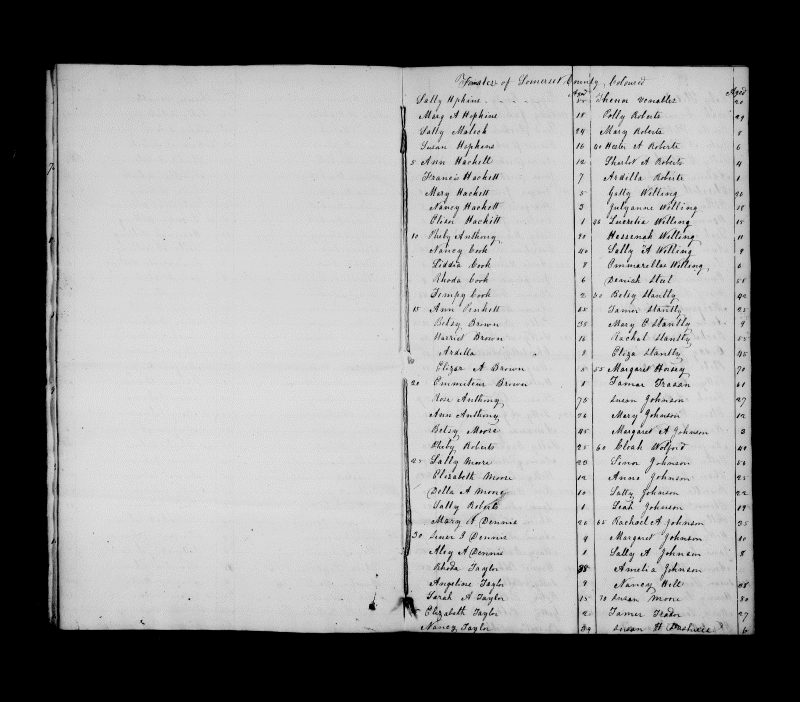 Females of Somerset County Coloured
Aged
Sally Hpkins
Mary A Hopkins 18
Sally Malick 24
Susan Hopkins 16
5 Ann Hackett 12
Francis Hackett 7
Mary Hackett 5
Nancy Hackett 3
Eliza Hackett 1
10 Pheby Anthony
Nancy Cook 40
Liddia Cook 8
Rhoda Cook 6
Tempy Cook 2
15 Ann 65
Betsy Brown 35
Harriet Brown 16
Ardilla 9
Elizar A Brown 5
20 Brown
Rose Anthony 75
Ann Anthony 26
Betsy Moore 45
Pheby Roberts 25
25 Sally Moore 23
Elizabeth Moore 12
Della A Moore 10
Sally Roberts 1
Mary A Dennis 20
30 Dennis 4
Aley A Dennis 1
Rhoda Taylor 38
Angeline Taylor 9
Sarah A Taylor 15
Elizabeth Taylor 2
Nancy Taylor 39
Aged
Venables 20
Polly Roberts 29
Mary Roberts 8
40 Hester A Roberts 6
Sharlot A Roberts 4
Ardilla Roberts 1
Gatty Willing 36
Julyanne Willing 18
45 Lucretia Willing 15
Willing 11
Sally A Willing 9
Emmarillas Willing 6
50 Betsy Stantly 42
Tamer Stantly 25
Mary C Stantly 9
Rachal Stantly 55
Eliza Stantly 45
55 Margaret 70
Tamar 61
Susan Johnson 27
Mary Johnson 12
Margaret A Johnson 3
60 Cloah Wolford 40
Johnson 56
Anne Johnson 25
Sally Johnson 22
Leah Johnson 19
65 Rachael A Johnson 35
Margaret Johnson 10
Sally A Johnson 8
Amelia Johnson
Nancy Hill
70 Susan Moore 80
Tamer 27
Susan H 6